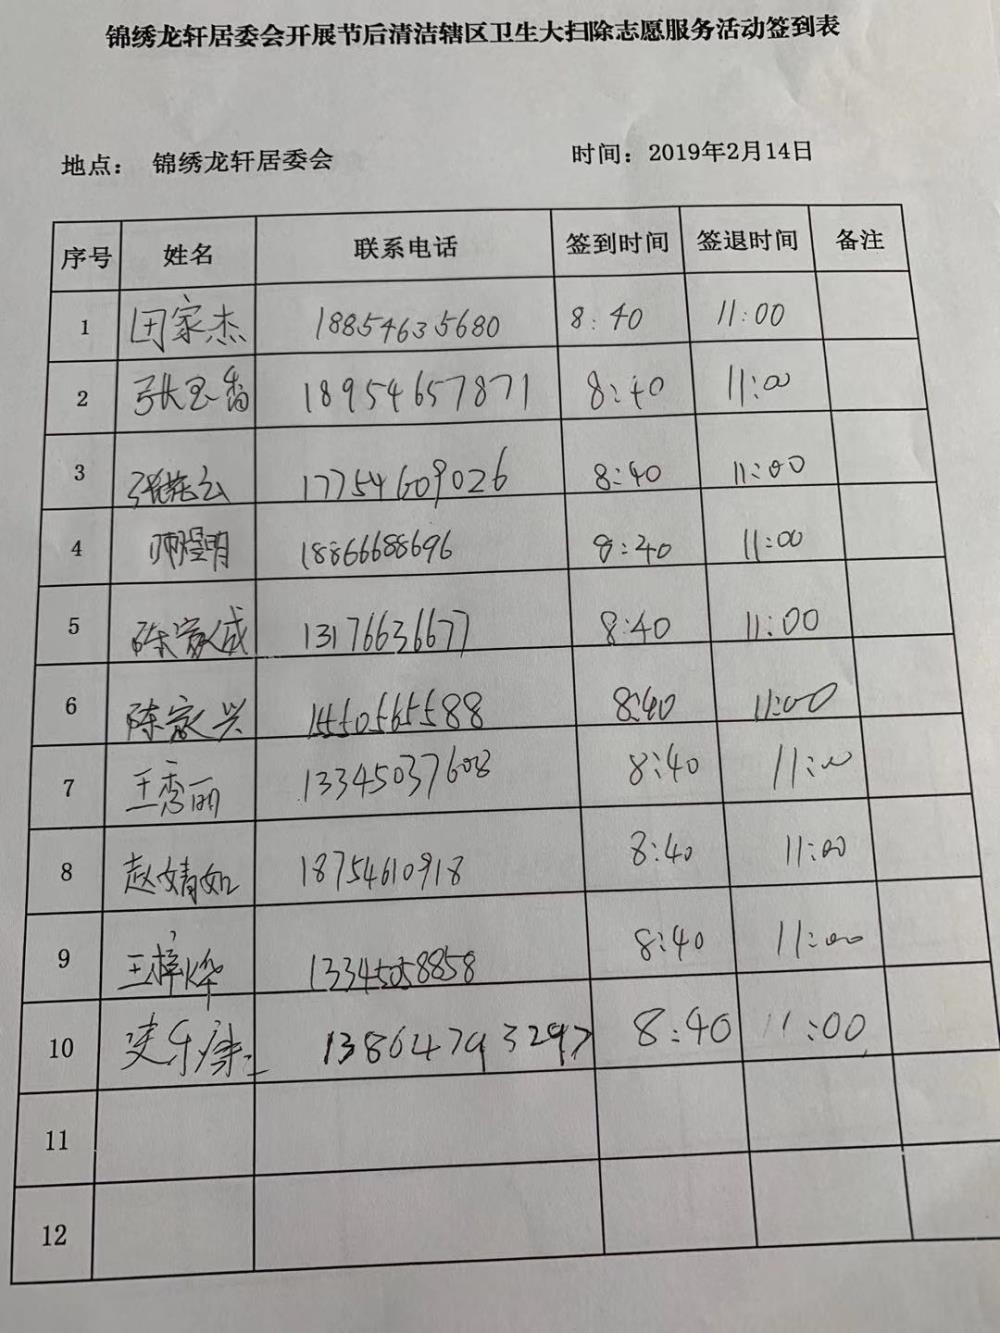 锦绣龙轩居委会开展节后清洁辖区卫生大扫除志愿服务活动签到表
地点： 锦绣龙轩居委会 时间：2019年2月14日
序号 姓名 联系电话 签到时间 签退时间 备注
1 田家杰 18854635680 8:40 11:00
2 张玉香 18954657871 8:40 11:00
3 17754609026 8:40 11:00
4 18866688696 8:40 11:00
5 陈家成 13176636677 8:40 11:00
6 陈家兴 15505655588 8:40 11:00
7 王秀丽 13345037608 8:40 11:00
8 赵婧如 18754610918 8:40 11:00
9 王梓烨 13345058858 8:40 11:00
10 13864793297 8:40 11:00
11
12